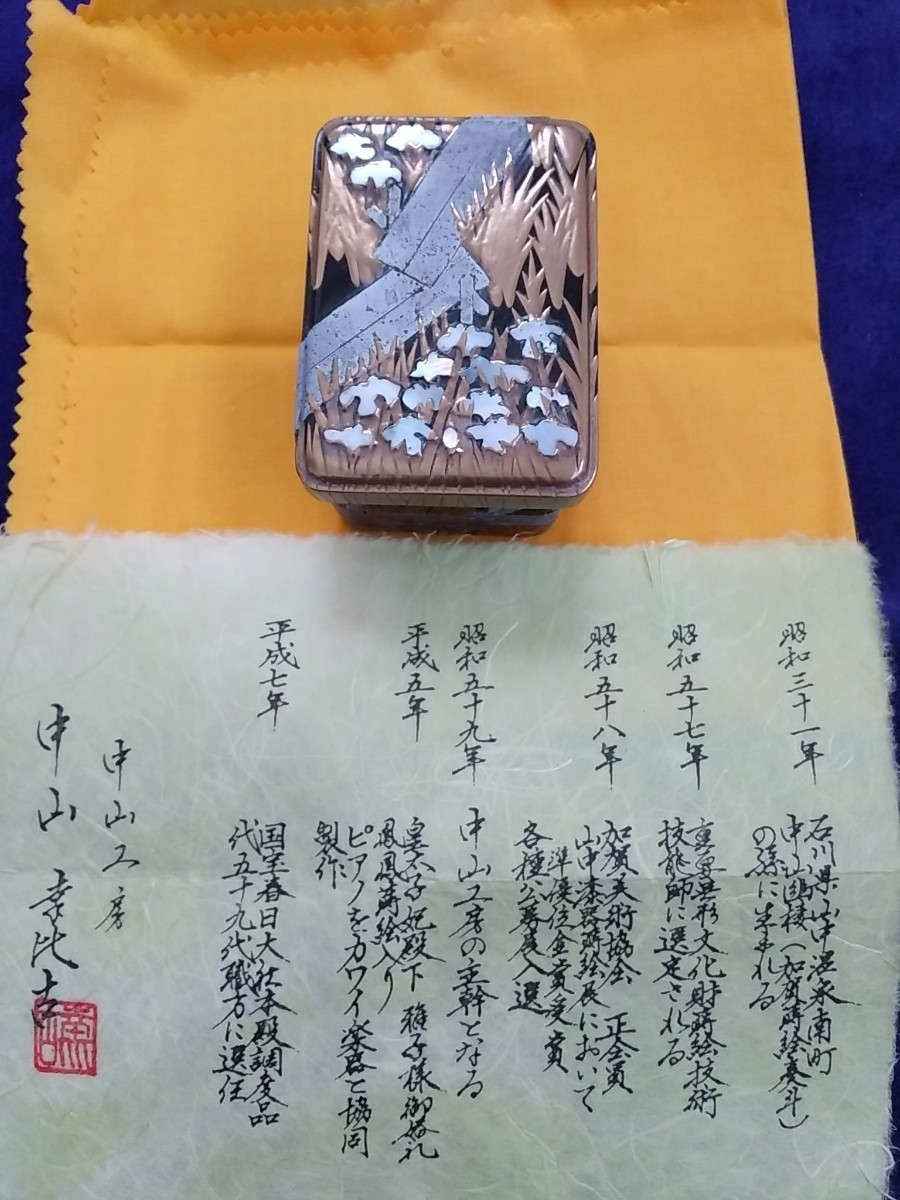 昭和三十一年
石川県山中温泉南町
中山
(加賀蒔絵泰斗)
の孫に生まれる
昭和五十七年
重要無形文化財蒔絵技術
技能師に選定される
昭和五十八年
加賀美術協会 正会員
山中漆器蒔絵展において
準優位金賞受賞
各種公募展入選
昭和五十九年
中山工房の主幹となる
平成五年
皇太子妃殿下 雅子様御婚礼
鳳凰蒔絵入り
ピアノをカワイ楽器と協同
製作
平成七年
国宝春日大社本殿調度品
代五十九代職方に選任
中山工房
中山 幸比古